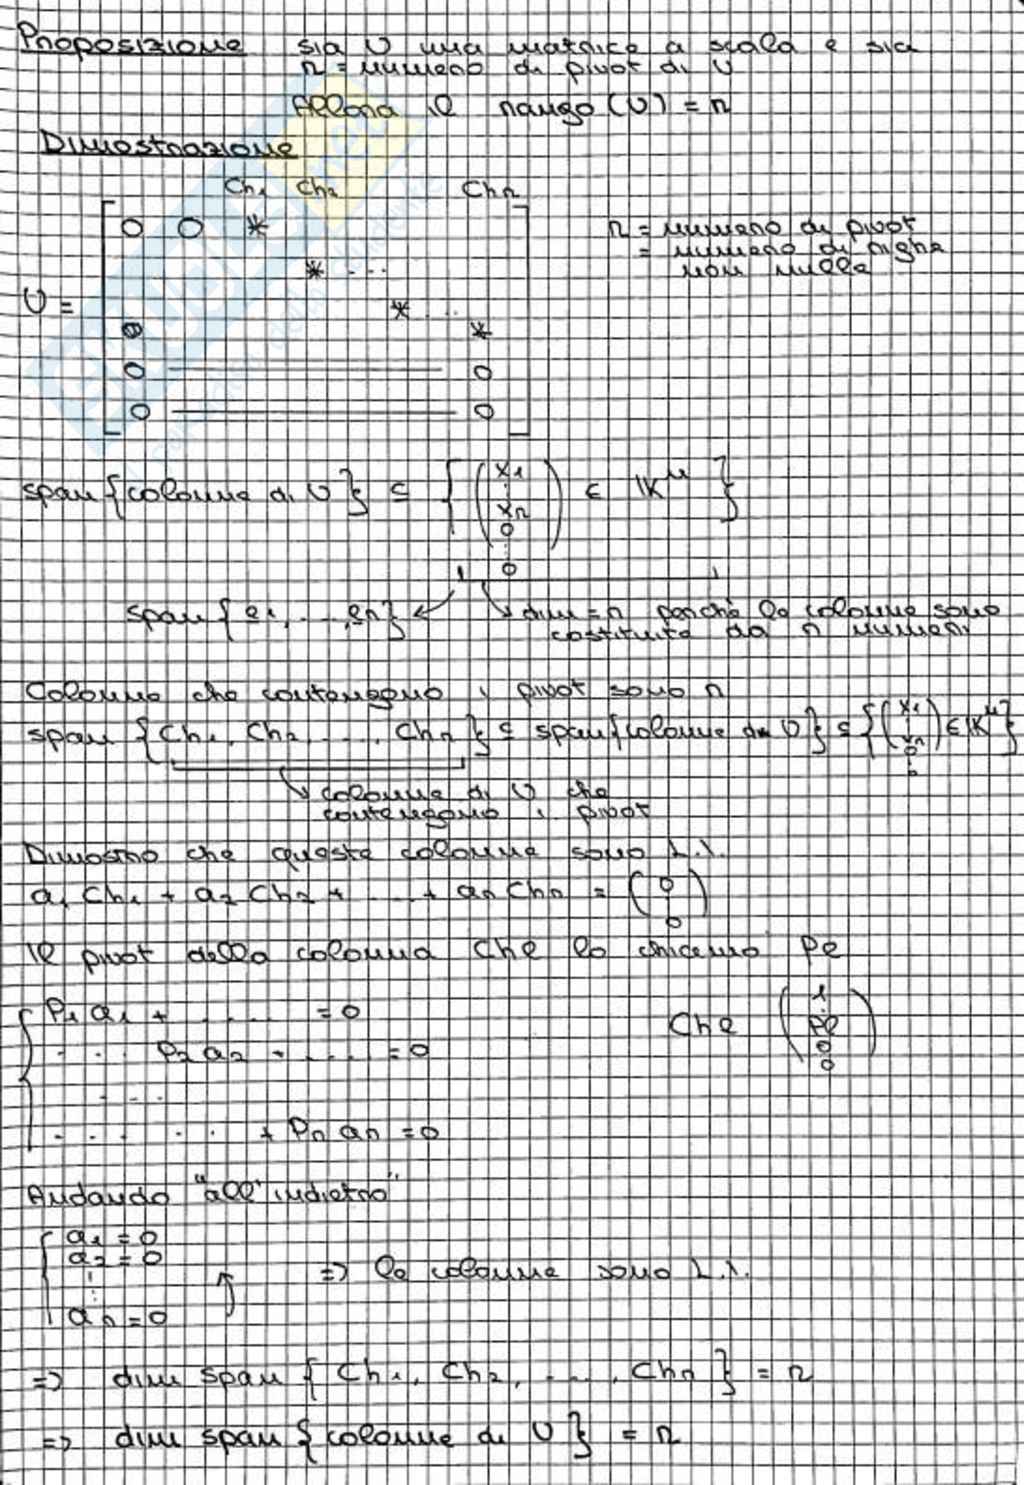 Proposizione sia U una matrice a scala e sia
r = numero di pivot di U
Allora il rango (U) = r
Dimostrazione
Ch1 Ch2 Chr
U = [ 0 0 *
* ...
* ...
0 *
0 0
0 0 ]
r = numero di pivot
= numero di righe
non nulle
span {colonne di U} ⊆ { (x1 ⋮ xr 0 ⋮ 0) ∈ 𝕂ᵐ }
span {e1, ..., er} ↙ ↘ dim = r perchè le colonne sono
costituite da r numeri
Colonne che contengono i pivot sono r
span {Ch1, Ch2 ..., Chr} ⊆ span{colonne di U} ⊆ { (x1 ⋮ xr 0 ⋮ 0) ∈ 𝕂ᵐ }
↘ colonne di U che
contengono i pivot
Dimostro che queste colonne sono L.I.
a1 Ch1 + a2 Ch2 + ... + ar Chr = (0 ⋮ 0)
Il pivot della colonna Chl lo chiamo Pl
P1 a1 + ... = 0
... P2 a2 + ... = 0
...
... + Pr ar = 0
Chl (⋮ Pl 0 0)
Andando "all'indietro"
a1 = 0
a2 = 0
⋮
ar = 0
=> le colonne sono L.I.
=> dim span {Ch1, Ch2, ..., Chr} = r
=> dim span {colonne di U} = r